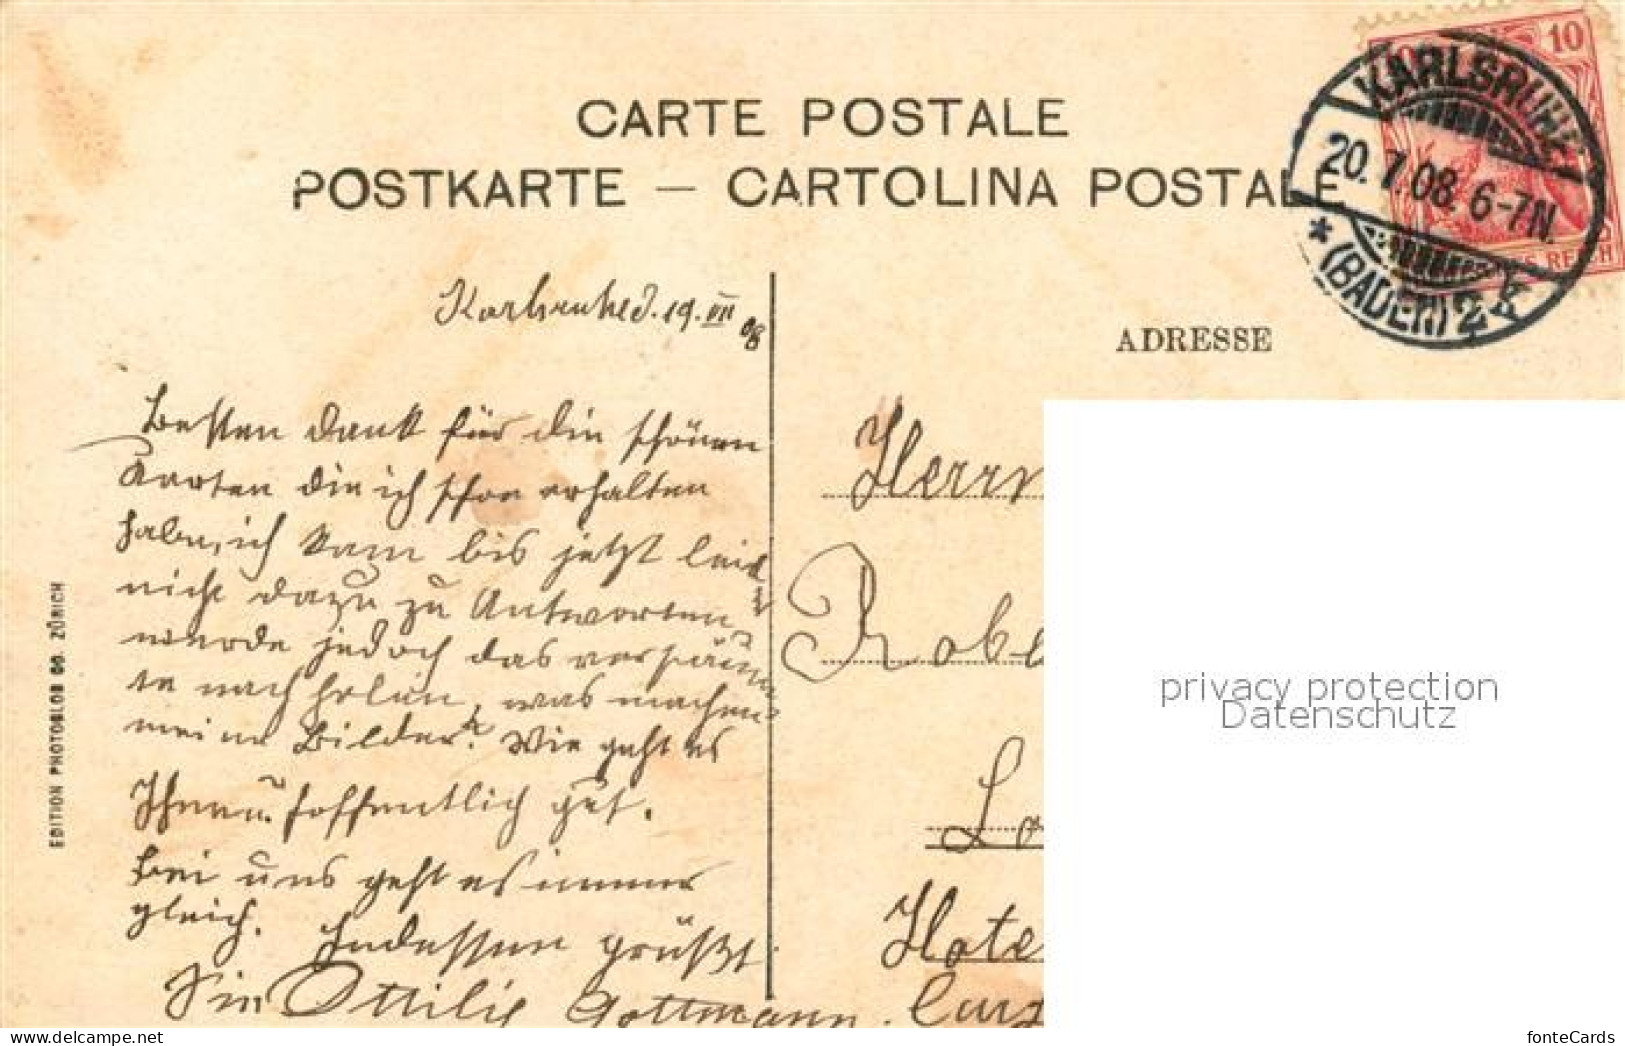 CARTE POSTALE
POSTKARTE — CARTOLINA POSTALE
10
KARLSRUHE
20.7.08. 6-7N.
* (BADEN) 2
REICH
Karlsruhe d. 19. VII 08
ADRESSE
Besten Dank für die schönen
Karten die ich schon erhalten
habe, ich kam bis jetzt leider
nicht dazu zu Antworten
werde jedoch das versäum
te nach holen, was machen
meine Bilder? Wie geht es
Ihnen hoffentlich gut.
Bei uns geht es immer
gleich. Indessen grüßt
Sie Ottilie Gottmann.
Herrn
Robe
Lo
Hote
EDITION PHOTOGLOB CO. ZÜRICH
privacy protection
Datenschutz
fonteCards